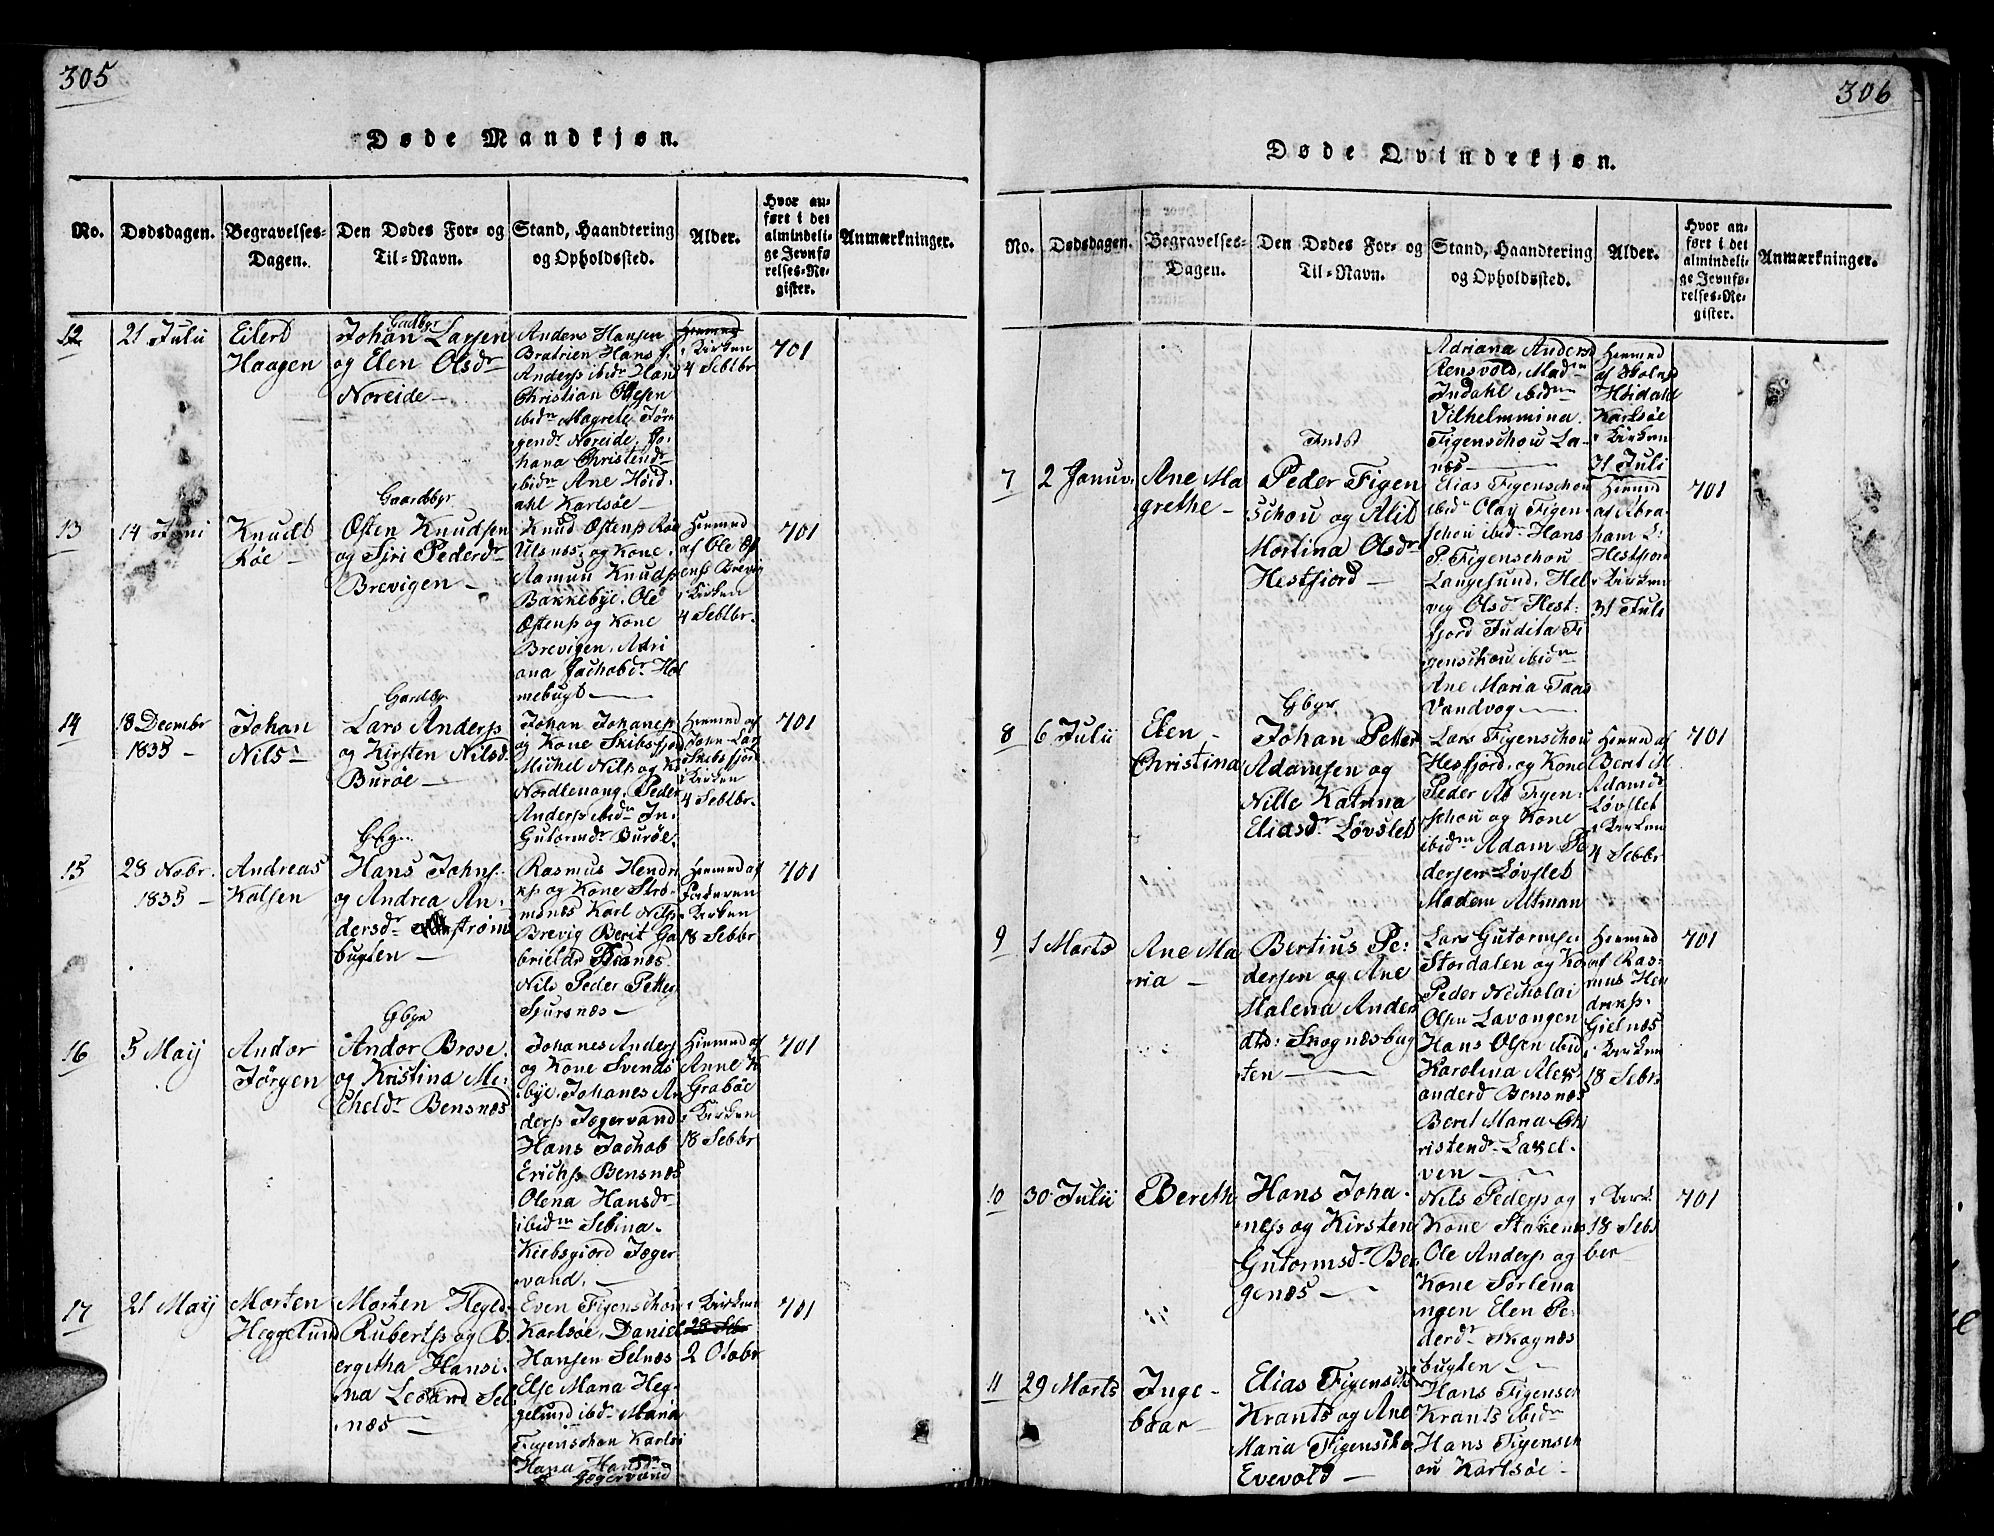 305
Døde Mandkjøn.
No.
Dødsdagen.
Begravelses-
Dagen.
Den Dødes For- og
Til-Navn.
Stand, Haandtering
og Opholdssted.
Alder.
Hvor an-
ført i det
almindeli-
ge Jevnfø-
relses-Re-
gister.
Anmærkninger.
12
21 Julii
Eilerd
Haagen
Gadbyr
Johan Larsen
og Elen Olsdr
Noreide
Anders Hansen
Bratrien Hans
Anders ibidm Han
Christian Olesen
ibidm Magrete Jør
gendr Noreide. Jo-
hana Christendr
ibidm Ane Höid
ahl Karlsöe
Hiemed
i Kirken
4 Sebtbr
701
13
14 Juni
Knudt
Röe
Gaardbyr
Østen Knudsen
og Siri Pedersdr
Brevigen
Knud Østens Röe
Ulsnes. og Kone.
Aamun Knuds
Bakkebye. Ole
Østens og Kone
Brevigen. Adri
ana Jachobdr Hol
mebugt
Hiemed
af Ole Øst
ens Brevig
i Kirken
4 Sebtbr.
701
14
18 Decmbr
1835
Johan
Nils
Gardbr
Lars Anders
og Kirsten Nilsd.
Buröe
Johan Johanes
og Kone Skibsfjord
Michel Nils og Ko
Nordlenang. Peder
Anders ibidm In.
Gutormdr Buröe.
Hiemed af
John Lars
Skibsfjord
i Kirken
4 Sebtbr.
701
15
28 Nobr.
1835
Andreas
Kalsen
Gbyr
Hans Johns.
og Andrea An.
dersdr strøms
bugten
Rasmus Hendri
ks og Kone Strø-
msnes Karl Nils
Brevig Berit Ga
brieldr Branes
Nils Peder Petter
Spursnæs
Hiemed af
Faderen
i Kirken
18 Sebbr
701
16
5 Maij
Andor
Jörgen
Gbyr
Andor Brose.
og Kristina Me.
cheldr Bensnæs
Johanes Anders
og Kone Svends
bye. Johanes An
ders Jægervand
Hans Jachob
Erichs Bensnæs
Olena Hansdr
ibidm Sebina
Kiebsgiord Jæger
vand.
Hiemed af
Anne K
Graböe
i Kirken
18 Sebbr
701
17
21 Maij
Morten
Heggelund
Morten Hegld.
Ruberts og B.
ergitha Hansi.
na Leonrd Sel
næs
Even Figenschou
Karlsöe. Daniel
Hansen Selnæs
Else Maria Heg-
gelund ibidm Maria
Figenschou Karlsö
Hana Hansdr
Jægervand
i Kirken
28 Seb
2 Otobr
701
306
Døde Qvindekjøn.
No.
Dødsdagen.
Begravelses-
Dagen.
Den Dødes For- og
Til-Navn.
Stand, Haandtering
og Opholdssted.
Alder.
Hvor an-
ført i det
almindeli-
ge Jevnfø-
relses-Re-
gister.
Anmærkninger.
Adriana Anders
Rensvold, Madm
Indahl ibidm
Vilhelmmina
Figenschou La-
næs
Hiemed
af
Höidahl
Karlsöe
i Kirken
31 Juli
7
2 Januar
Ane Ma
grethe
Inds
Peder Figen
schou og Alid
Mortina Olsdr
Hestfiord
Elias Figenschou
ibidm Olay Figen-
schou ibidm Hans
P. Figenschou
Langesund, Hel
vig Olsdr Hest:
fjord Judita Fi
genschou ibidm
Ane Maria Taars
Vandvog
Hiemed
af Abra
ham L:
Hestfjord
i Kirken
31 Juli
701
8
6 Julii
Elen
Christina
Gbyr
Johan Petter
Adamsen og
Nille Katrina
Eliasdr Løvslet
Lars Figenschou
Hesfjord. og Kone
Peder Ab Figen.
schou og Kone
ibidm Adam Pe
dersen Løvslet
Madem Altman
Hiemed af
Berit M
Adamdr
Løvslet
i Kirken
4 Sebbr
701
9
1 Marts
Ane Ma
ria
Bertius Pe:
dersen og Ane
Malena Ander
dtr: Skognesbug
ten
Lars Gutormsen
Stordalen og Ko
Peder Nicholai
Olsen Lavangen
Hans Olsen ibid
Karolina Alex
anderd Bensnæs
Beret Maria Ch
ristendr Laxel-
ven
Hiemed
af Ras-
mus Hen
driks.
Gielnæs
i Kirken
18 Sebr
701
10
30 Julii
Bereth
Hans Joha.
nes og Kirsten
Gutormsd Ber
genæs
Nils Peders og
Kone Stakenes
Ole Anders og
Kone Sörlena
ngen Elen Pe-
derdr Skognæs
bugten
i Kirk
18 Seb
ber
701
11
29 Marts
Inge-
baar
Elias Figensch
Krants og Ane
Maria Figensko
Evevold
Hans Figensch
Krants ibidm
Hans Figensch
ou Karlsöe